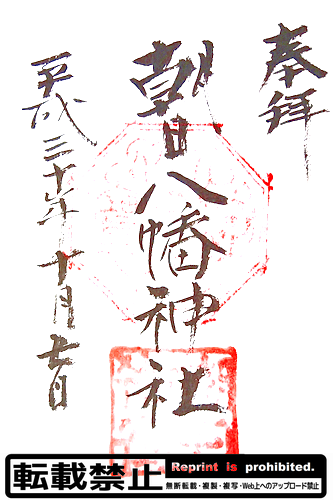 奉拝
朝日八幡神社
平成三十年十月七日
転載禁止
Reprint is prohibited.
無断転載・複製・複写・Web上へのアップロード禁止